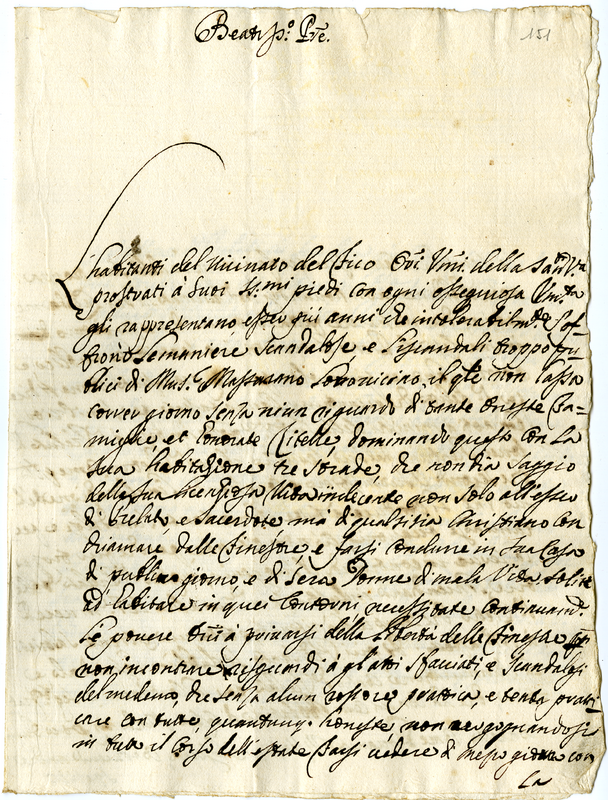 151
Beatiss.º Pre.
habitanti del vicinato del Fico Ori Vmi. della Santà Vra
prostrati à suoi ss.mi piedi con ogni ossequiosa Vm.ta
gli rappresentano esser più anni che intolerabilm.te Sof-
frono le maniere scandalose, e li scandali troppo pu-
blici di Mus. il qle non lassa
correr giorno senza niun riguardo di tante oneste Fa=
miglie, et honorate Zitelle, dominando questo con la
sua habitazione tre strade, che non dia saggio
della sua licenziosa Vita indecente non solo all'esser
di Prelato, e Sacerdote mà di qualsisia Christiano con
chiamare dalle finestre, e farsi condurre in sua Casa
di publico giorno, e di sera Donne di mala Vita solite
ad habitare in quei Contorni necessitate continuam.
Le povere à privarsi della libertà delle finestre per
non incontrare risguardi à gl'atti sfacciati, e scandalosi
del medemo, che senza alcun rossore prattica, e tenta pratti
care con tutte, quantunq. honeste, non vergognandosi
in tutto il Corso dell'estate farsi vedere di mezo giorno con
la